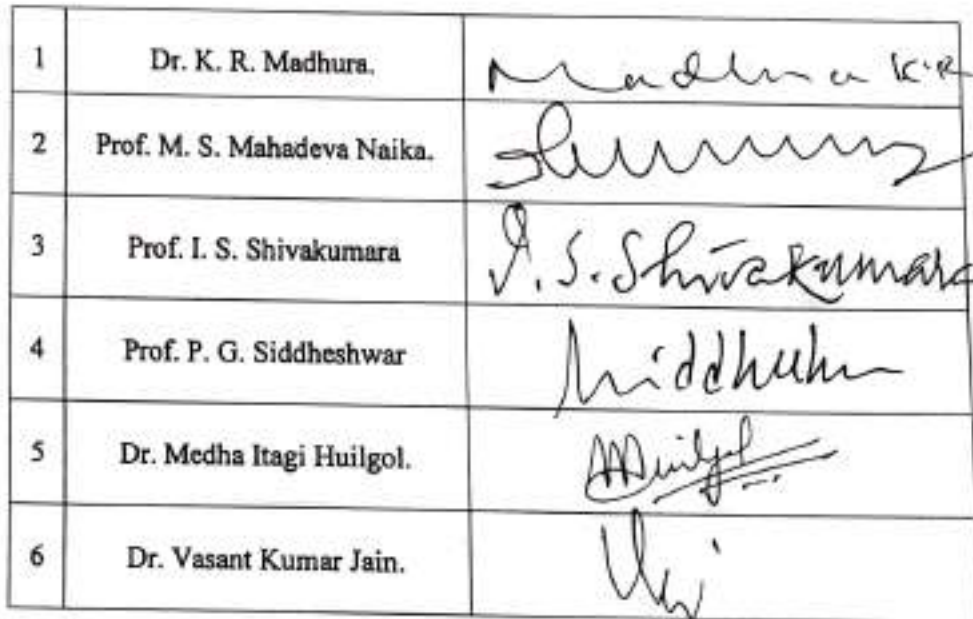 1 Dr. K. R. Madhura. Madhura K.R
2 Prof. M. S. Mahadeva Naika.
3 Prof. I. S. Shivakumara I. S. Shivakumara
4 Prof. P. G. Siddheshwar
5 Dr. Medha Itagi Huilgol.
6 Dr. Vasant Kumar Jain.